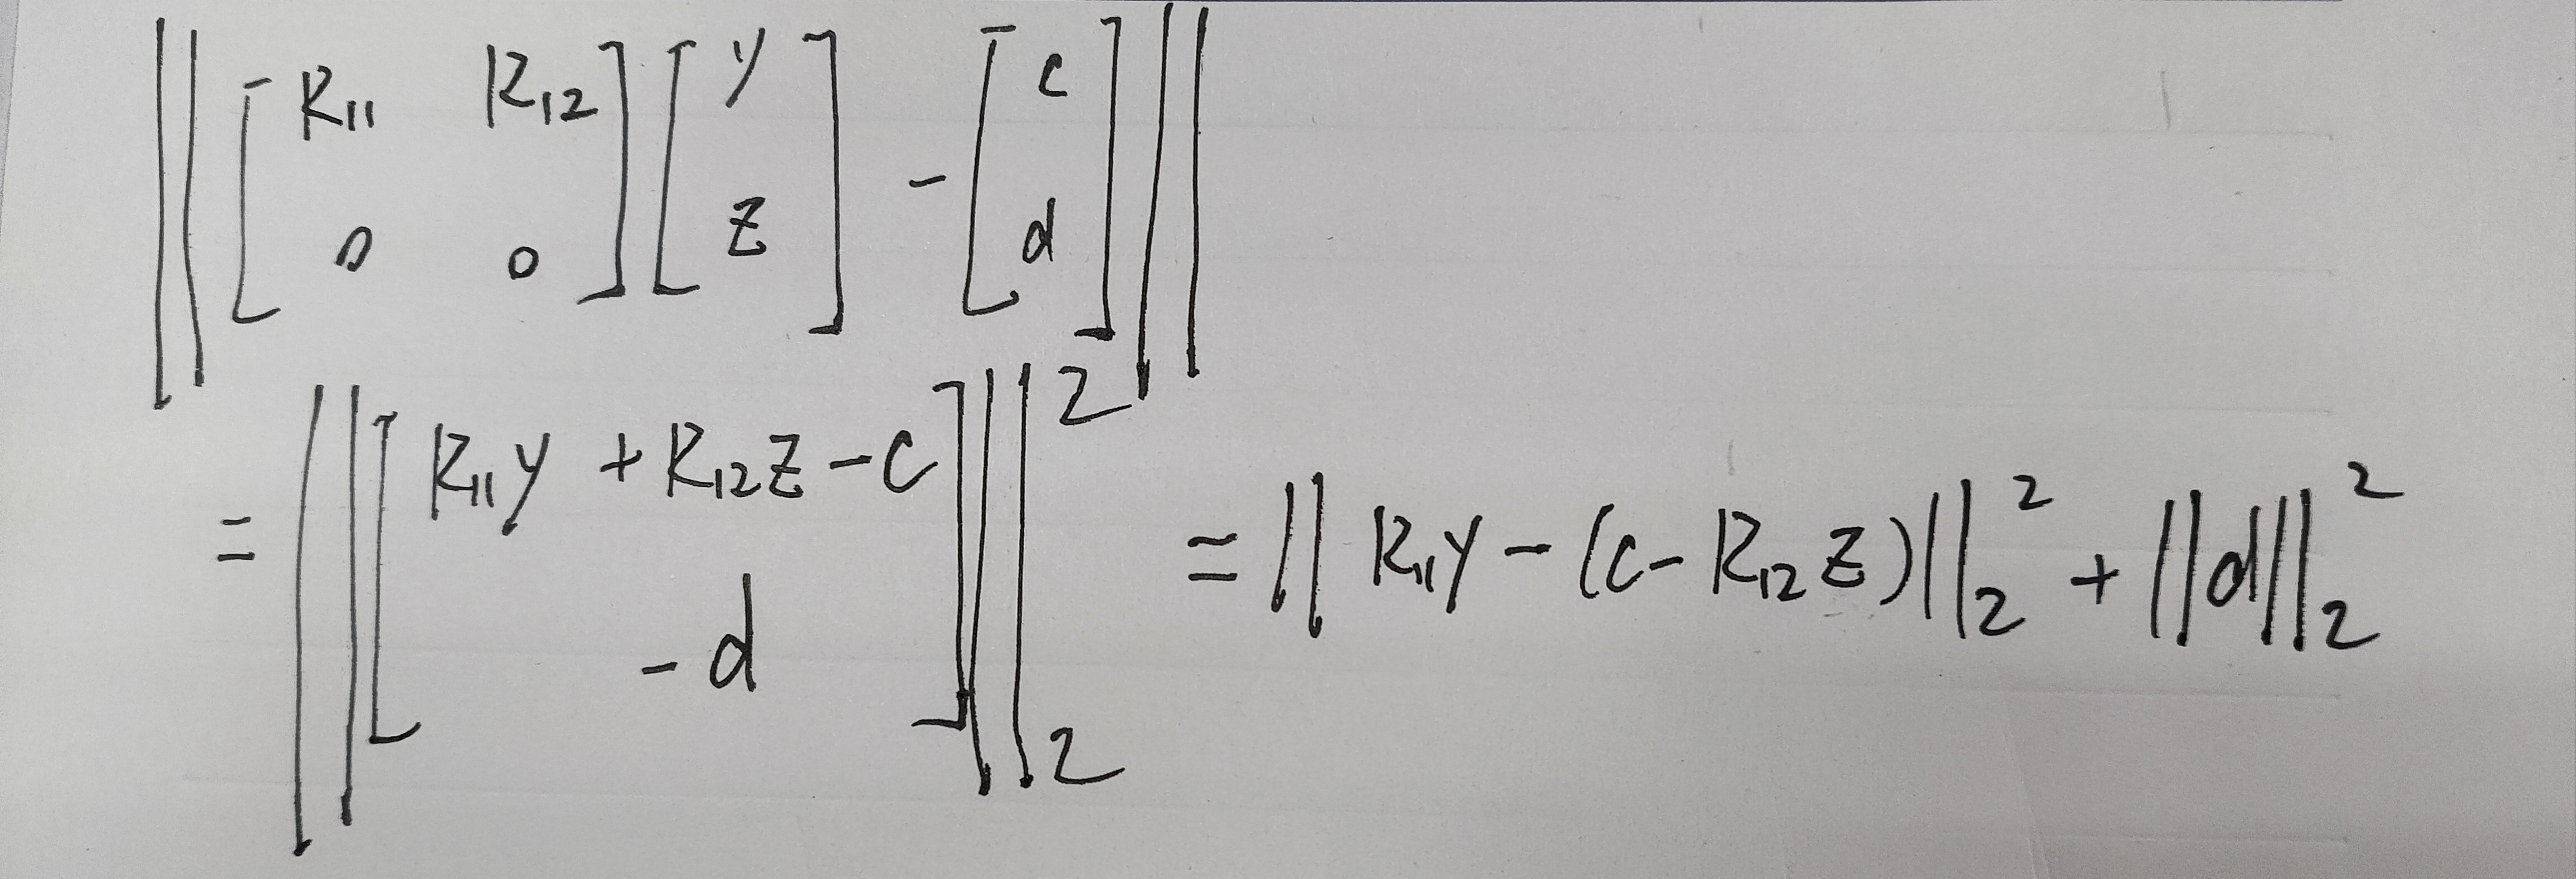 ‖ [ R₁₁ R₁₂ ; 0 0 ] [ y ; z ] - [ c ; d ] ‖
= ‖ [ R₁₁y + R₁₂z - c ; -d ] ‖₂² = ‖ R₁₁y - (c - R₁₂z) ‖₂² + ‖d‖₂²